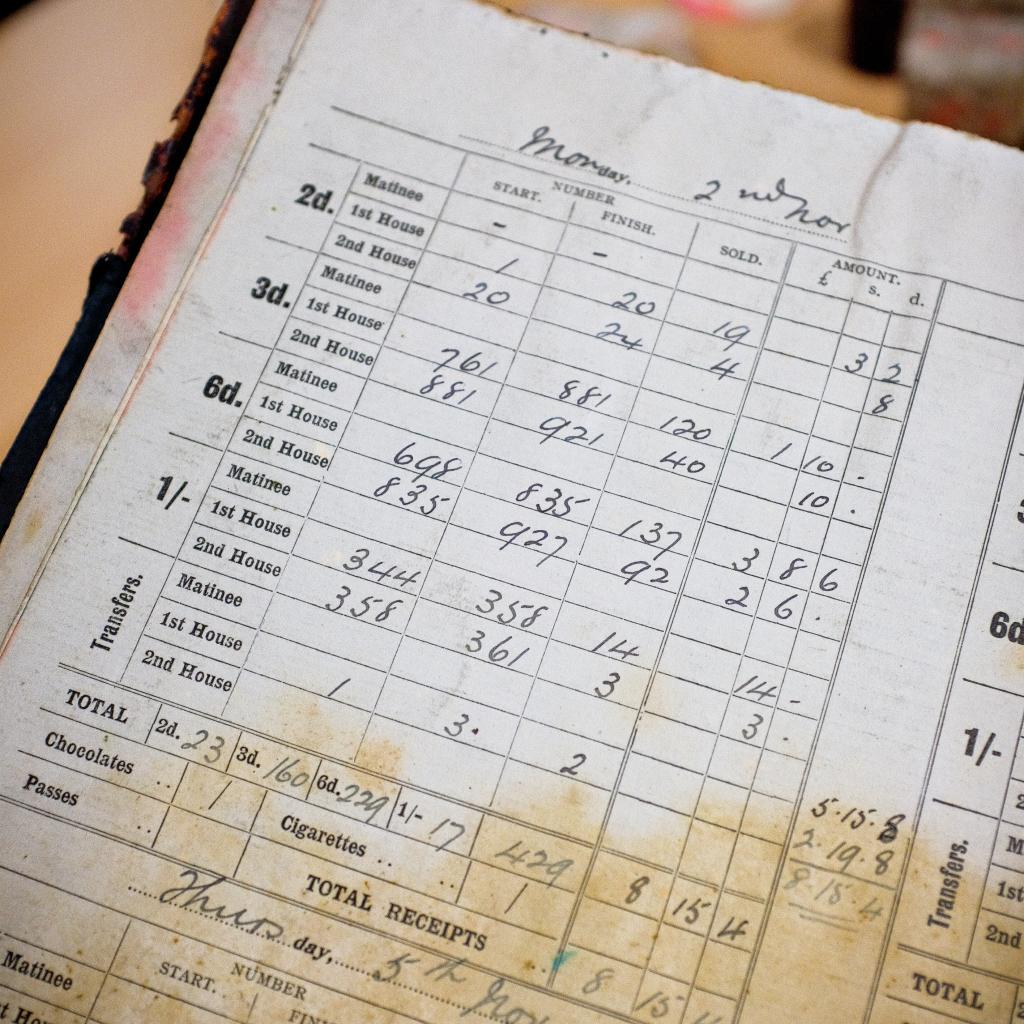 Monday, 2nd Nov
NUMBER AMOUNT.
START. FINISH. SOLD. £ s. d.
2d. Matinee - -
1st House 1 20 19 3 2
2nd House 20 24 4 8
3d. Matinee
1st House 761 881 120 1 10 -
2nd House 881 921 40 10 .
6d. Matinee
1st House 698 835 137 3 8 6
2nd House 835 927 92 2 6 .
1/- Matinee
1st House 344 358 14 14 -
2nd House 358 361 3 3 .
Transfers. Matinee
1st House
2nd House 1 3. 2
5.15.8
2.19.8
8.15.4
TOTAL 2d. 23 3d. 160 6d. 229 1/- 17 429 8 15 4
Chocolates .. / Cigarettes .. /
Passes .. TOTAL RECEIPTS 8 15 4
Thursday, 5th Nov
NUMBER
START.
Matinee
6d
1/-
Transfers.
1st
2nd
TOTAL